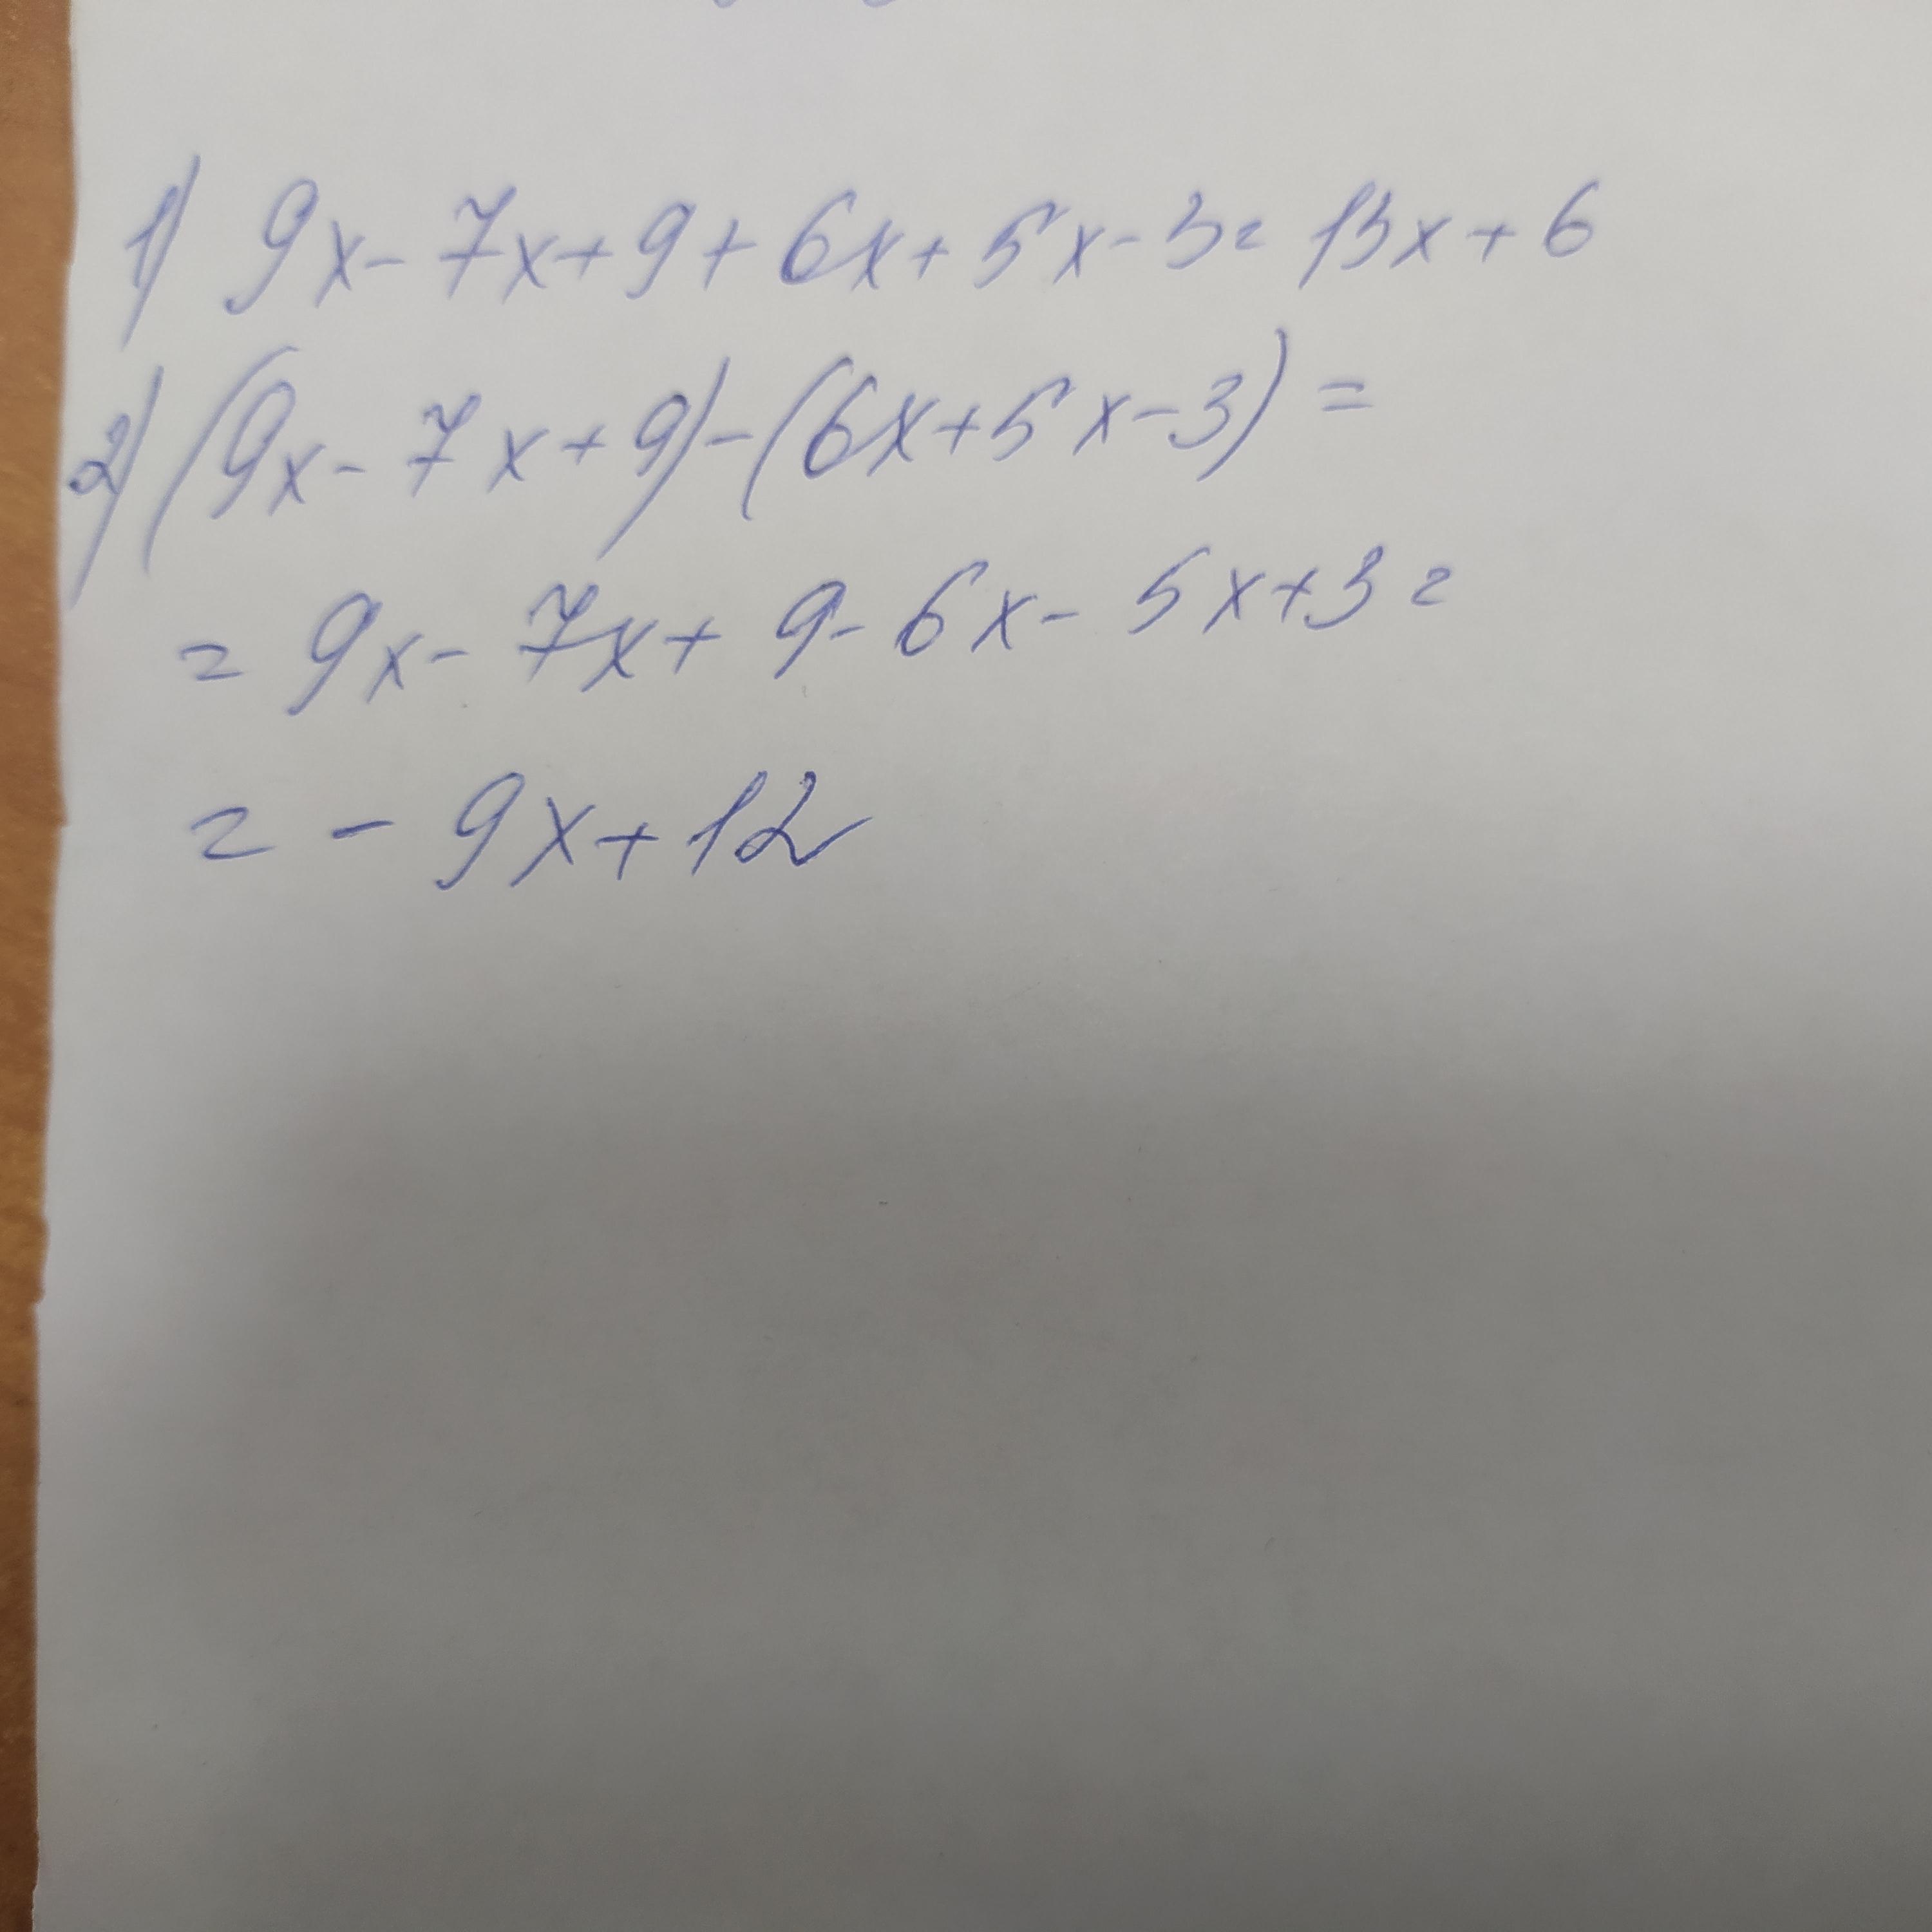 1) 9x - 7x + 9 + 6x + 5x - 3 = 13x + 6
2) (9x - 7x + 9) - (6x + 5x - 3) =
= 9x - 7x + 9 - 6x - 5x + 3 =
= - 9x + 12